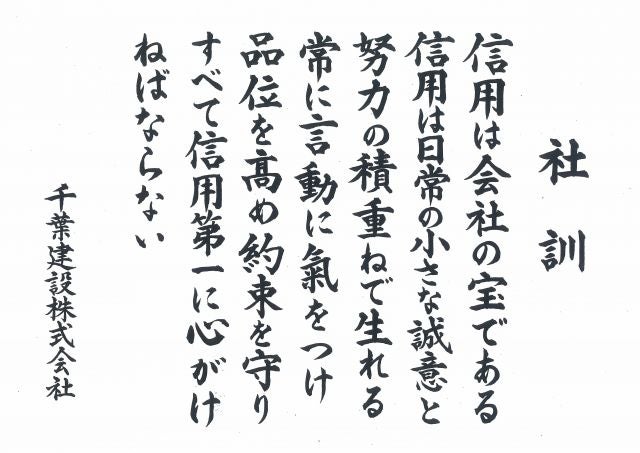 社訓
信用は会社の宝である
信用は日常の小さな誠意と
努力の積重ねで生れる
常に言動に氣をつけ
品位を高め約束を守り
すべて信用第一に心がけ
ねばならない
千葉建設株式会社